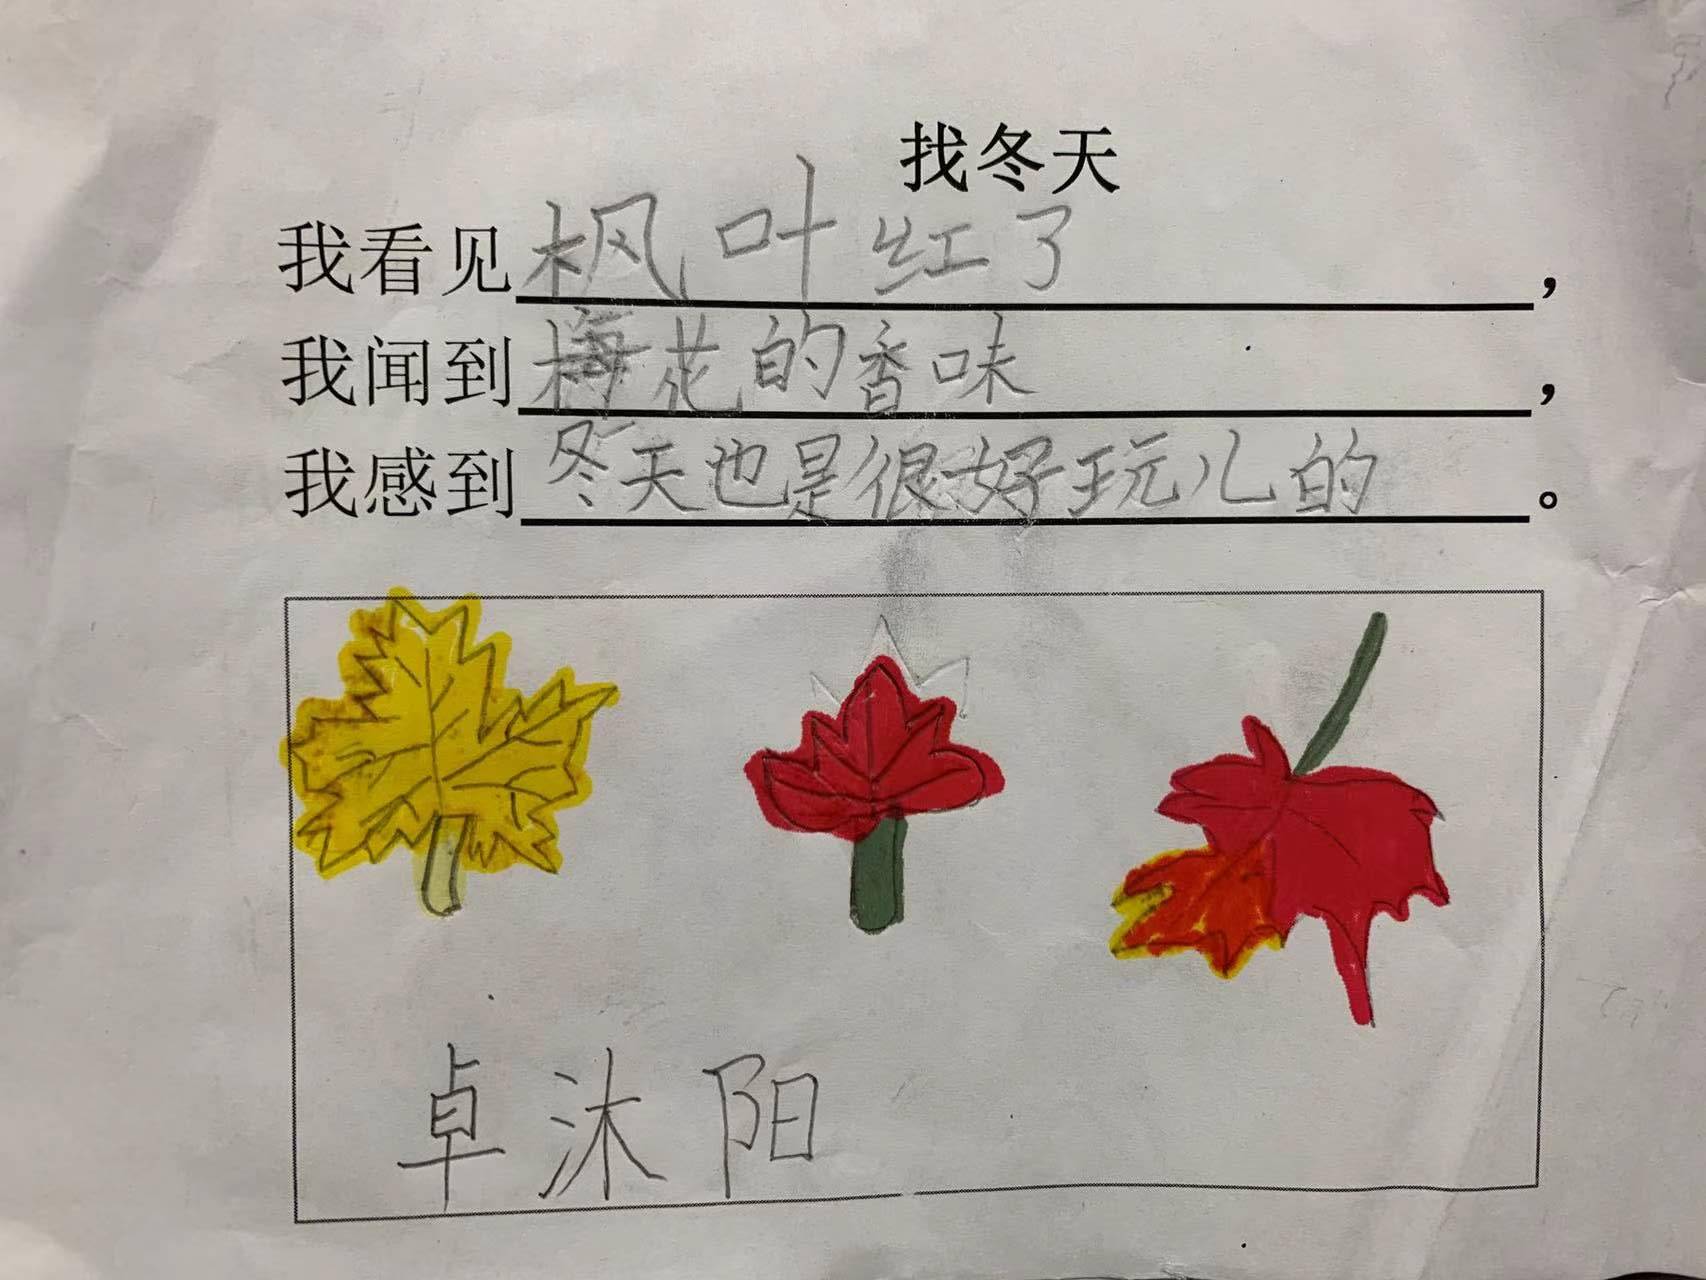 找冬天
我看见枫叶红了，
我闻到梅花的香味，
我感到冬天也是很好玩儿的。
卓沐阳